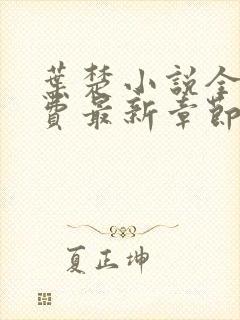 葉楚小說全
費最新章節
夏正坤